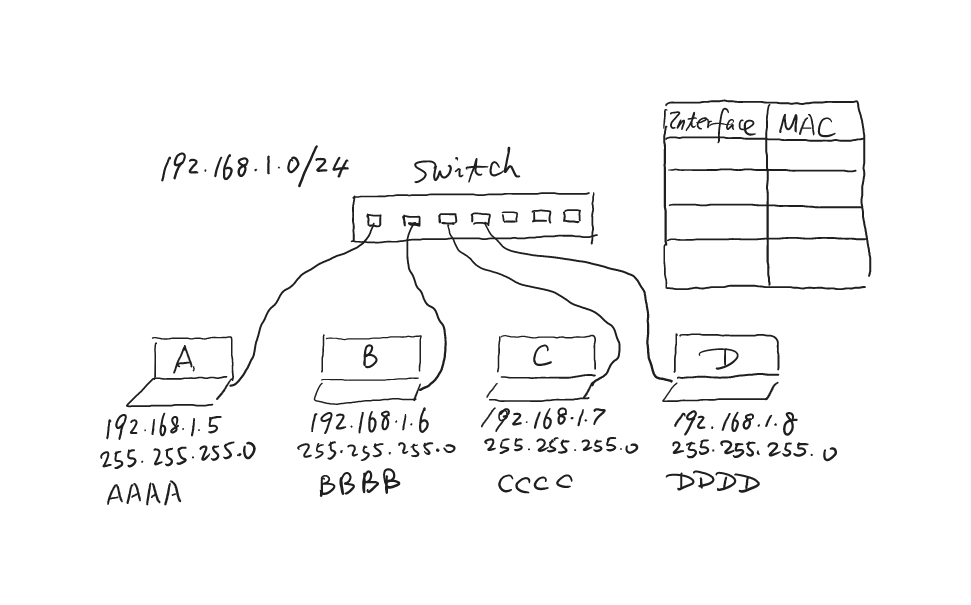 192.168.1.0/24
Switch
Interface MAC
A
B
C
D
192.168.1.5
255.255.255.0
AAAA
192.168.1.6
255.255.255.0
BBBB
192.168.1.7
255.255.255.0
CCCC
192.168.1.8
255.255.255.0
DDDD